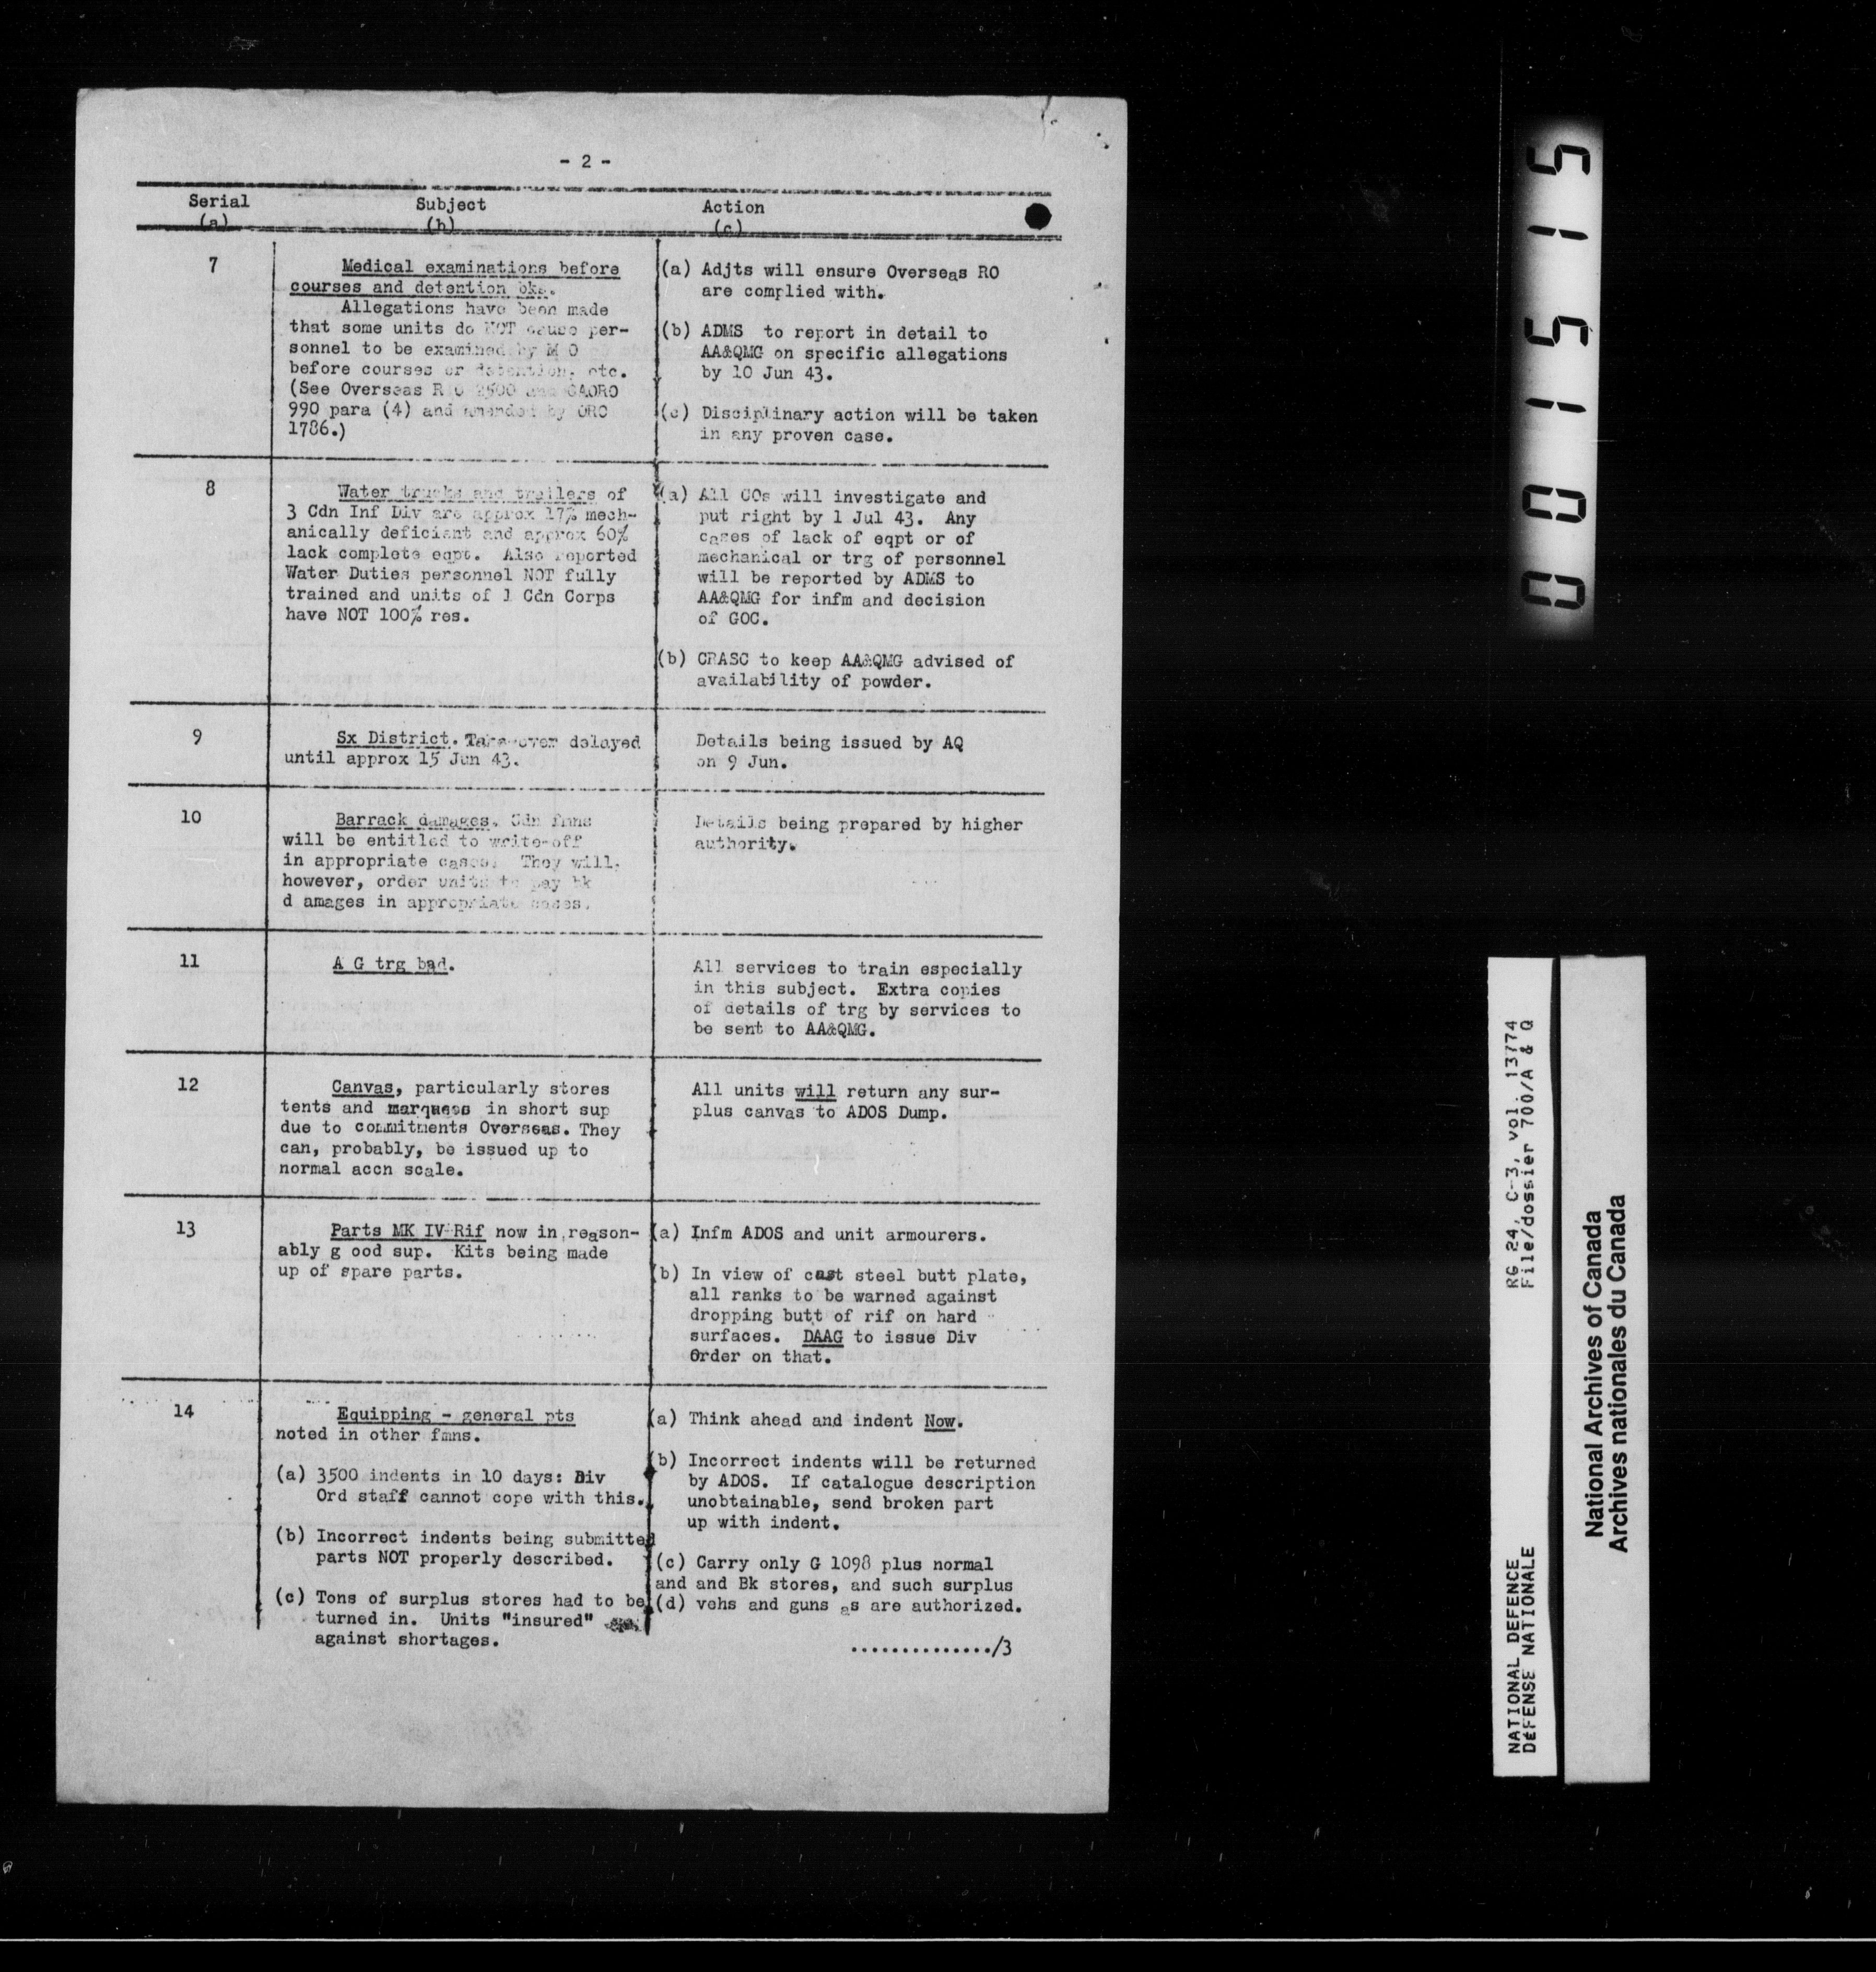 - 2 -
Serial Subject Action
(a) (b) (c)
7
Medical examinations before
courses and detention bks.
Allegations have been made
that some units do NOT cause per-
sonnel to be examined by M O
before courses or detention, etc.
(See Overseas R O 2500 and CAORO
990 para (4) and amended by ORO
1786.)
(a) Adjts will ensure Overseas RO
are complied with.
(b) ADMS to report in detail to
AA&QMG on specific allegations
by 10 Jun 43.
(c) Disciplinary action will be taken
in any proven case.
8
Water trucks and trailers of
3 Cdn Inf Div are approx 17% mech-
anically deficient and approx 60%
lack complete eqpt. Also reported
Water Duties personnel NOT fully
trained and units of 1 Cdn Corps
have NOT 100% res.
(a) All COs will investigate and
put right by 1 Jul 43. Any
cases of lack of eqpt or of
mechanical or trg of personnel
will be reported by ADMS to
AA&QMG for infm and decision
of GOC.
(b) CRASC to keep AA&QMG advised of
availability of powder.
9
Sx District. Take-over delayed
until approx 15 Jun 43.
Details being issued by AQ
on 9 Jun.
10
Barrack damages. Cdn fmns
will be entitled to write-off
in appropriate cases. They will,
however, order units to pay bk
d amages in appropriate cases.
Details being prepared by higher
authority.
11
A G trg bad.
All services to train especially
in this subject. Extra copies
of details of trg by services to
be sent to AA&QMG.
12
Canvas, particularly stores
tents and marquees in short sup
due to commitments Overseas. They
can, probably, be issued up to
normal accn scale.
All units will return any sur-
plus canvas to ADOS Dump.
13
Parts MK IV Rif now in reason-
ably g ood sup. Kits being made
up of spare parts.
(a) Infm ADOS and unit armourers.
(b) In view of cast steel butt plate,
all ranks to be warned against
dropping butt of rif on hard
surfaces. DAAG to issue Div
Order on that.
14
Equipping - general pts
noted in other fmns.
(a) 3500 indents in 10 days: Div
Ord staff cannot cope with this.
(b) Incorrect indents being submitted
parts NOT properly described.
(c) Tons of surplus stores had to be
turned in. Units "insured"
against shortages.
(a) Think ahead and indent Now.
(b) Incorrect indents will be returned
by ADOS. If catalogue description
unobtainable, send broken part
up with indent.
(c) Carry only G 1098 plus normal
and and Bk stores, and such surplus
(d) vehs and guns as are authorized.
............../3
001515
RG 24, C-3, vol. 13774
File/dossier 700/A & Q
NATIONAL DEFENCE
DÉFENSE NATIONALE
National Archives of Canada
Archives nationales du Canada